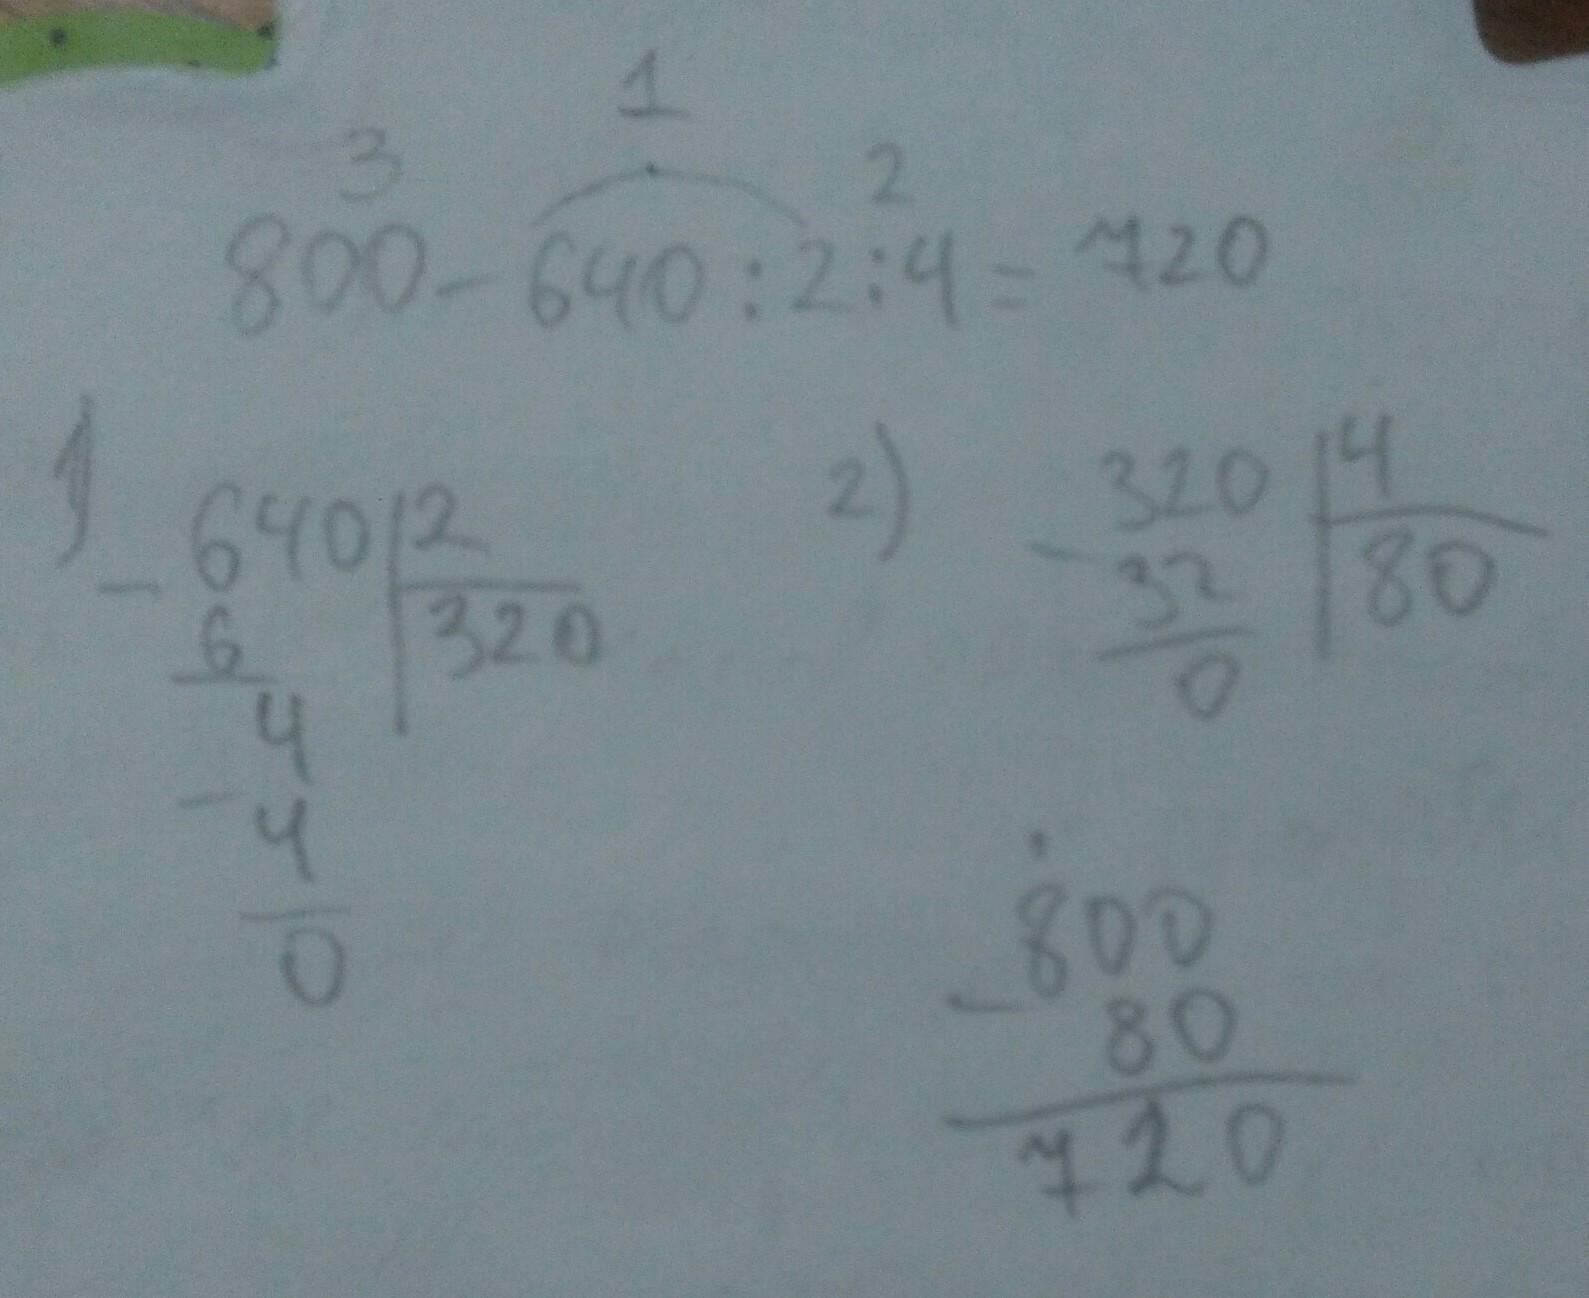 1
3 2
800 - 640 : 2 : 4 = 720
1)
- 640 | 2
6 | 320
4
- 4
0
2)
- 320 | 4
32 | 80
0
- 800
80
720